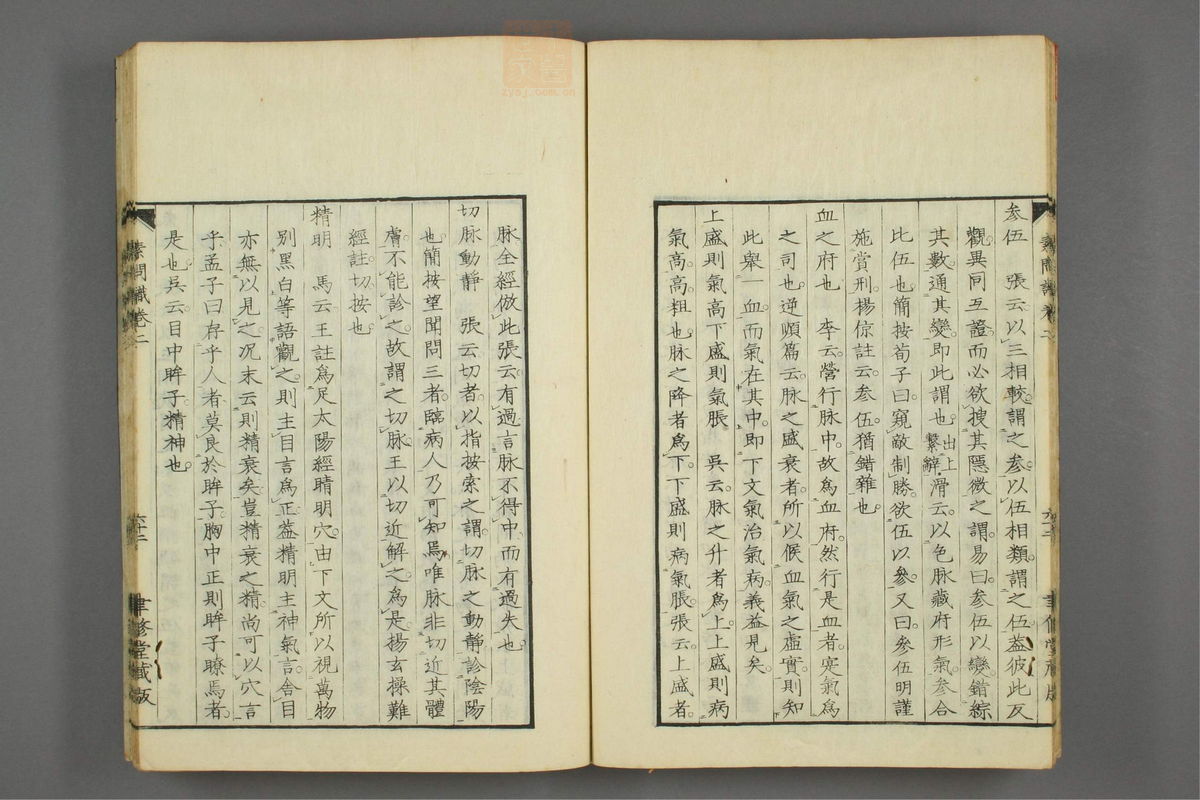 素問識卷二
聿修堂藏版
参伍　張云以三相較謂之参以伍相類謂之伍蓋彼此反
觀異同互證而必欲搜其隱微之謂易曰参伍以變錯綜
其數通其變即此謂也出上繫辭滑云以色脉藏府形氣参合
比伍也簡按荀子曰窺敵制勝欲伍以參又曰參伍明謹
施賞刑楊倞註云参伍猶錯雜也
血之府也　李云營行脉中故爲血府然行是血者寔氣爲
之司也逆順篇云脉之盛衰者所以候血氣之虛實則知
此舉一血而氣在其中即下文氣治氣病義益見矣
上盛則氣高下盛則氣脹　吳云脉之升者爲上上盛則病
氣高高粗也脉之降者爲下下盛則病氣脹張云上盛者
脉全經倣此張云有過言脉不得中而有過失也
切脉動靜　張云切者以指按索之謂切脉之動靜診陰陽
也簡按望聞問三者臨病人乃可知焉唯脉非切近其體
膚不能診之故謂之切脉王以切近解之爲是揚玄操難
經註切按也
精明　馬云王註爲足太陽經睛明穴由下文所以視萬物
別黑白等語觀之則主目言爲正蓋精明主神氣言舍目
亦無以見之况末云則精衰矣豈精衰之精尚可以穴言
乎孟子曰存乎人者莫良於眸子胸中正則眸子瞭焉者
是也吳云目中眸子精神也
素問識卷二
六十二
聿修堂藏版